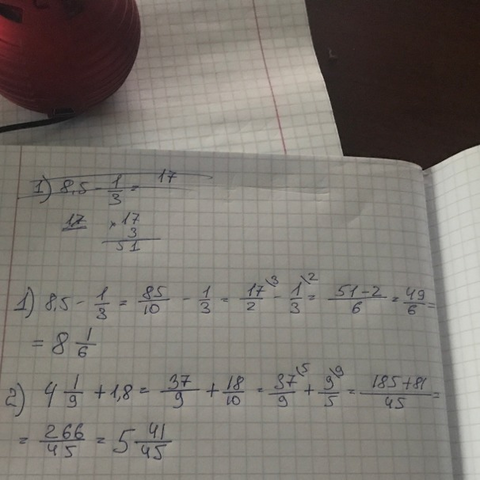 1) 8,5 - 1/3 = 17
17 × 17
3
51
1) 8,5 - 1/3 = 85/10 - 1/3 = 17\3/2 - 1\2/3 = 51-2/6 = 49/6 =
= 8 1/6
2) 4 1/9 + 1,8 = 37/9 + 18/10 = 37\5/9 + 9\9/5 = 185+81/45 =
= 266/45 = 5 41/45